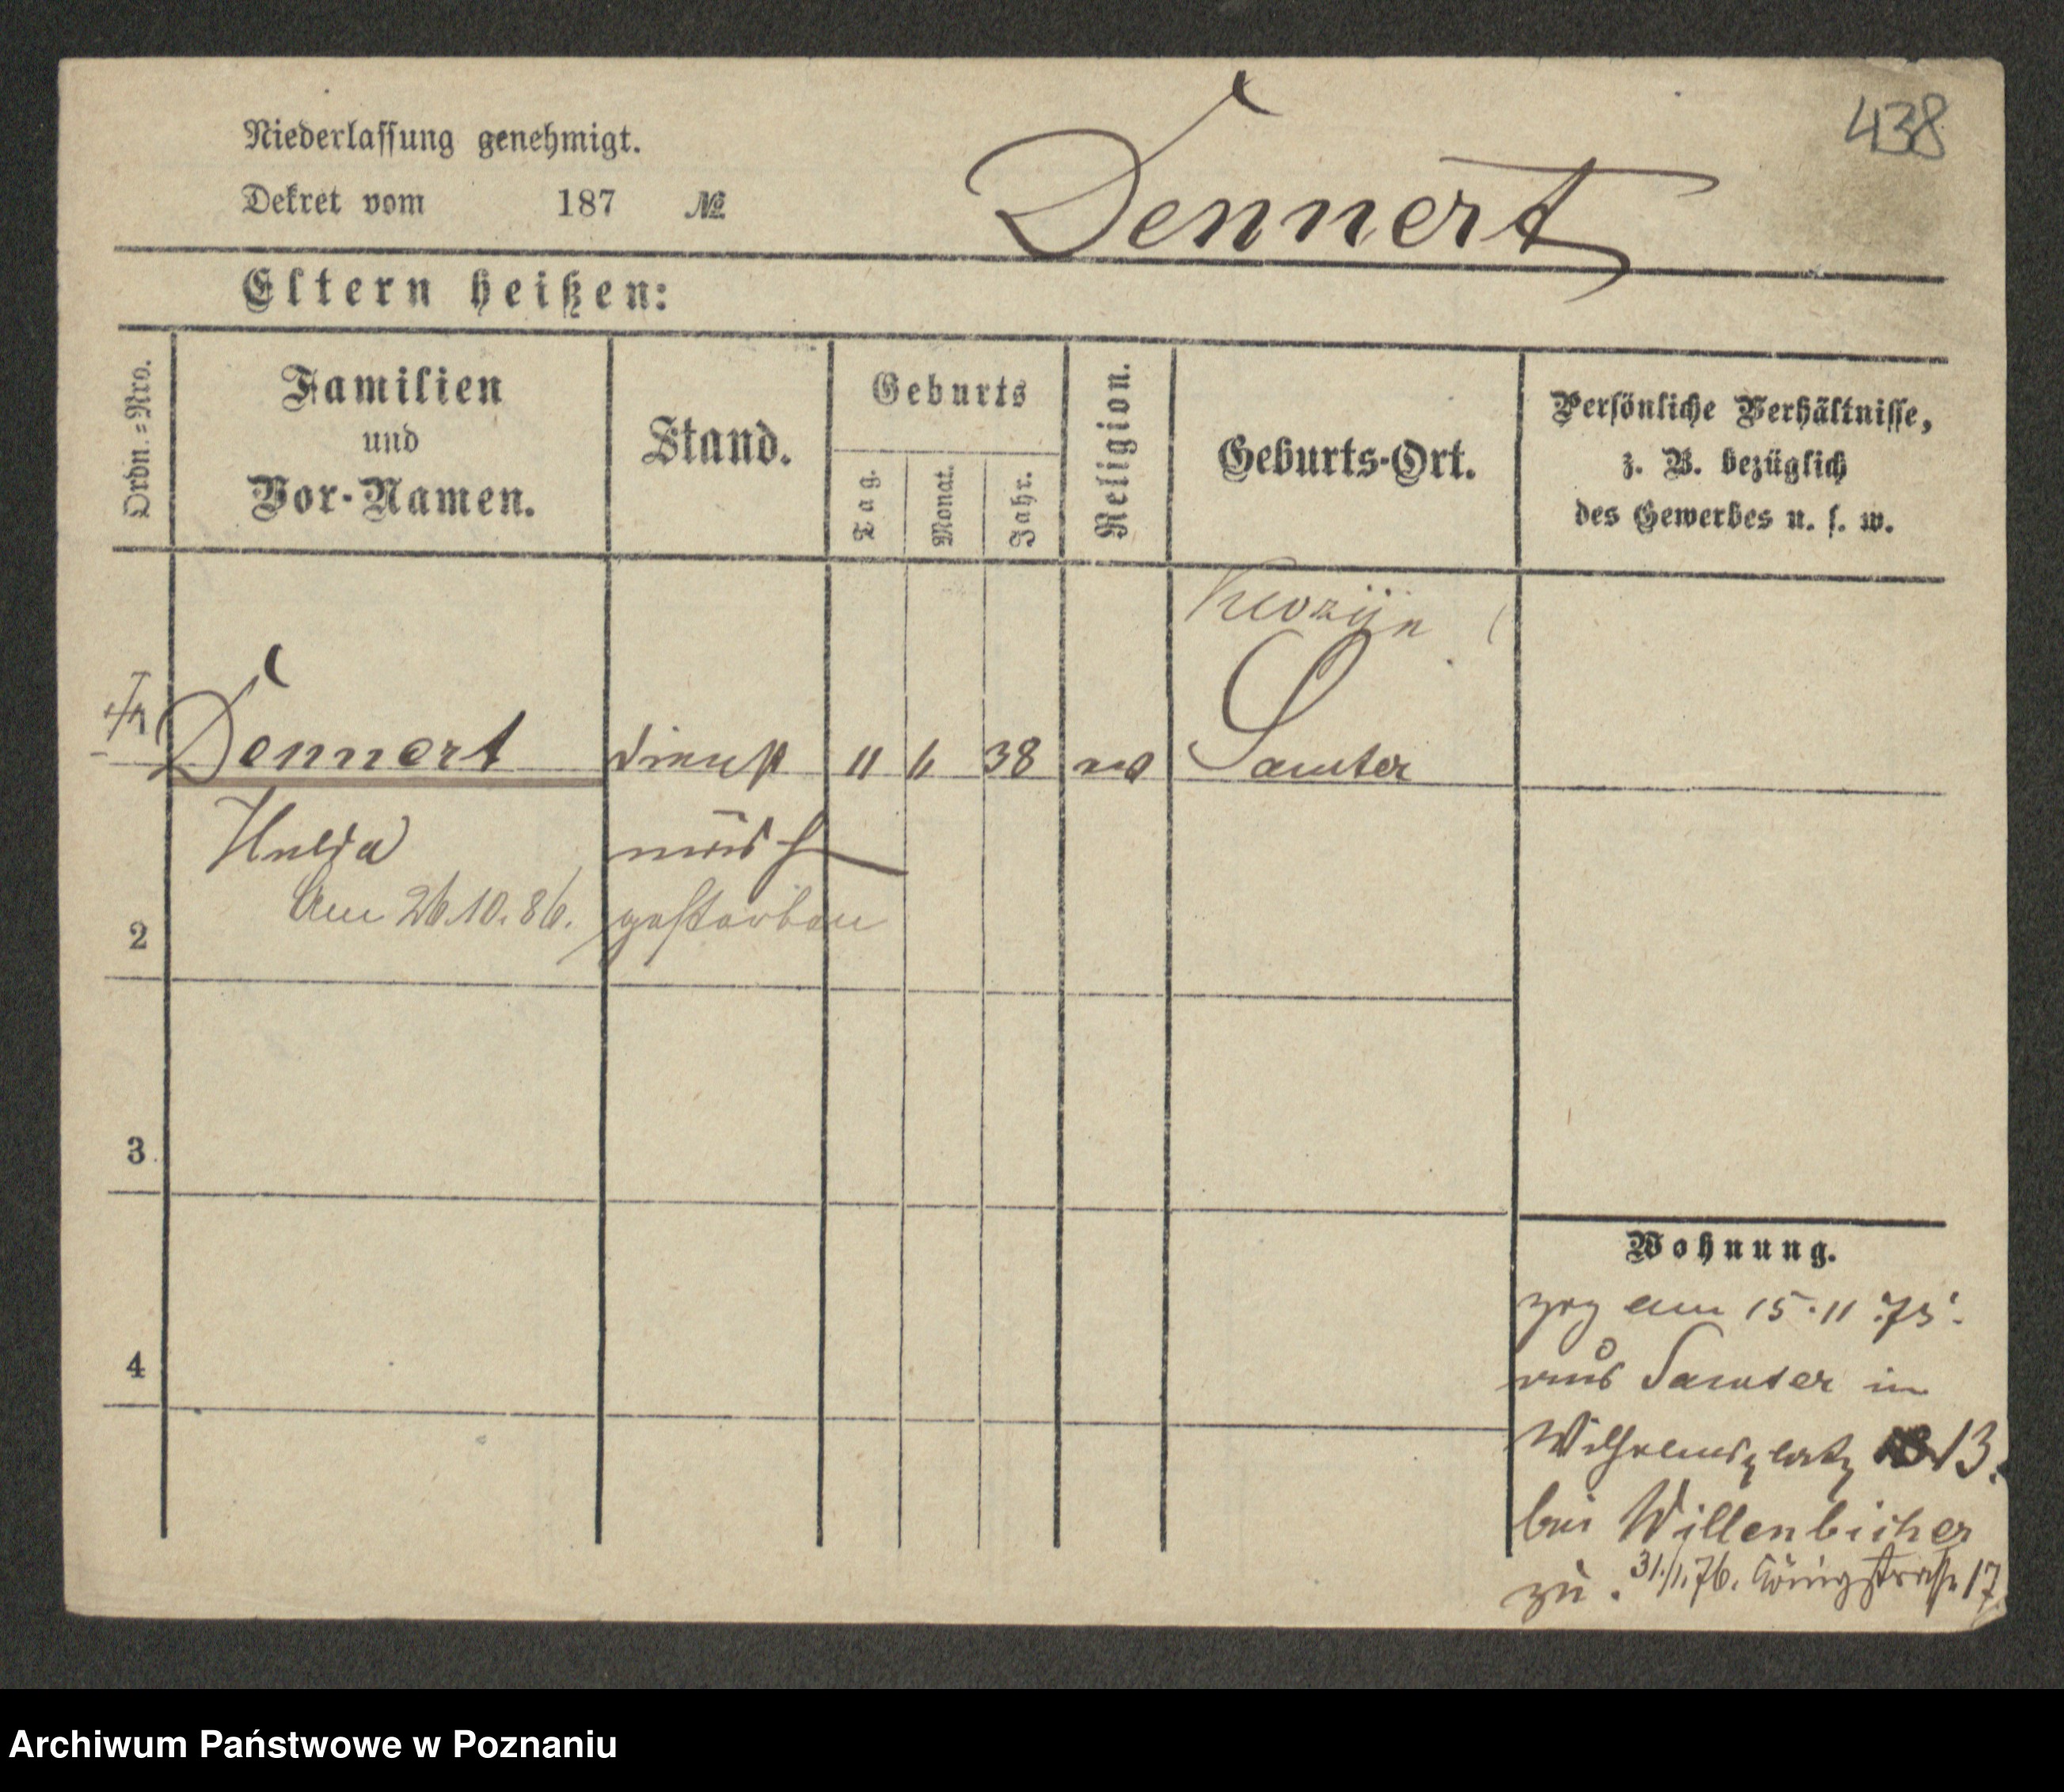 438
Niederlassung genehmigt.
Dekret vom 187 №
Dennert
Eltern heißen:
Ordn.=Nro.
Familien
und
Vor-Namen.
Stand.
Geburts
Tag.
Monat.
Jahr.
Religion.
Geburts-Ort.
Persönliche Verhältnisse,
z. B. bezüglich
des Gewerbes u. s. w.
Dennert Dienst 11 38 Samter
Hulda
Am 26.10.86. gestorben
2
3
4
Wohnung.
zog am 15.11.75.
aus Samter in
Wilhelmsplatz 13.
bei Willenbücher
zu. 31./1.76. Königstraße 17
Archiwum Państwowe w Poznaniu